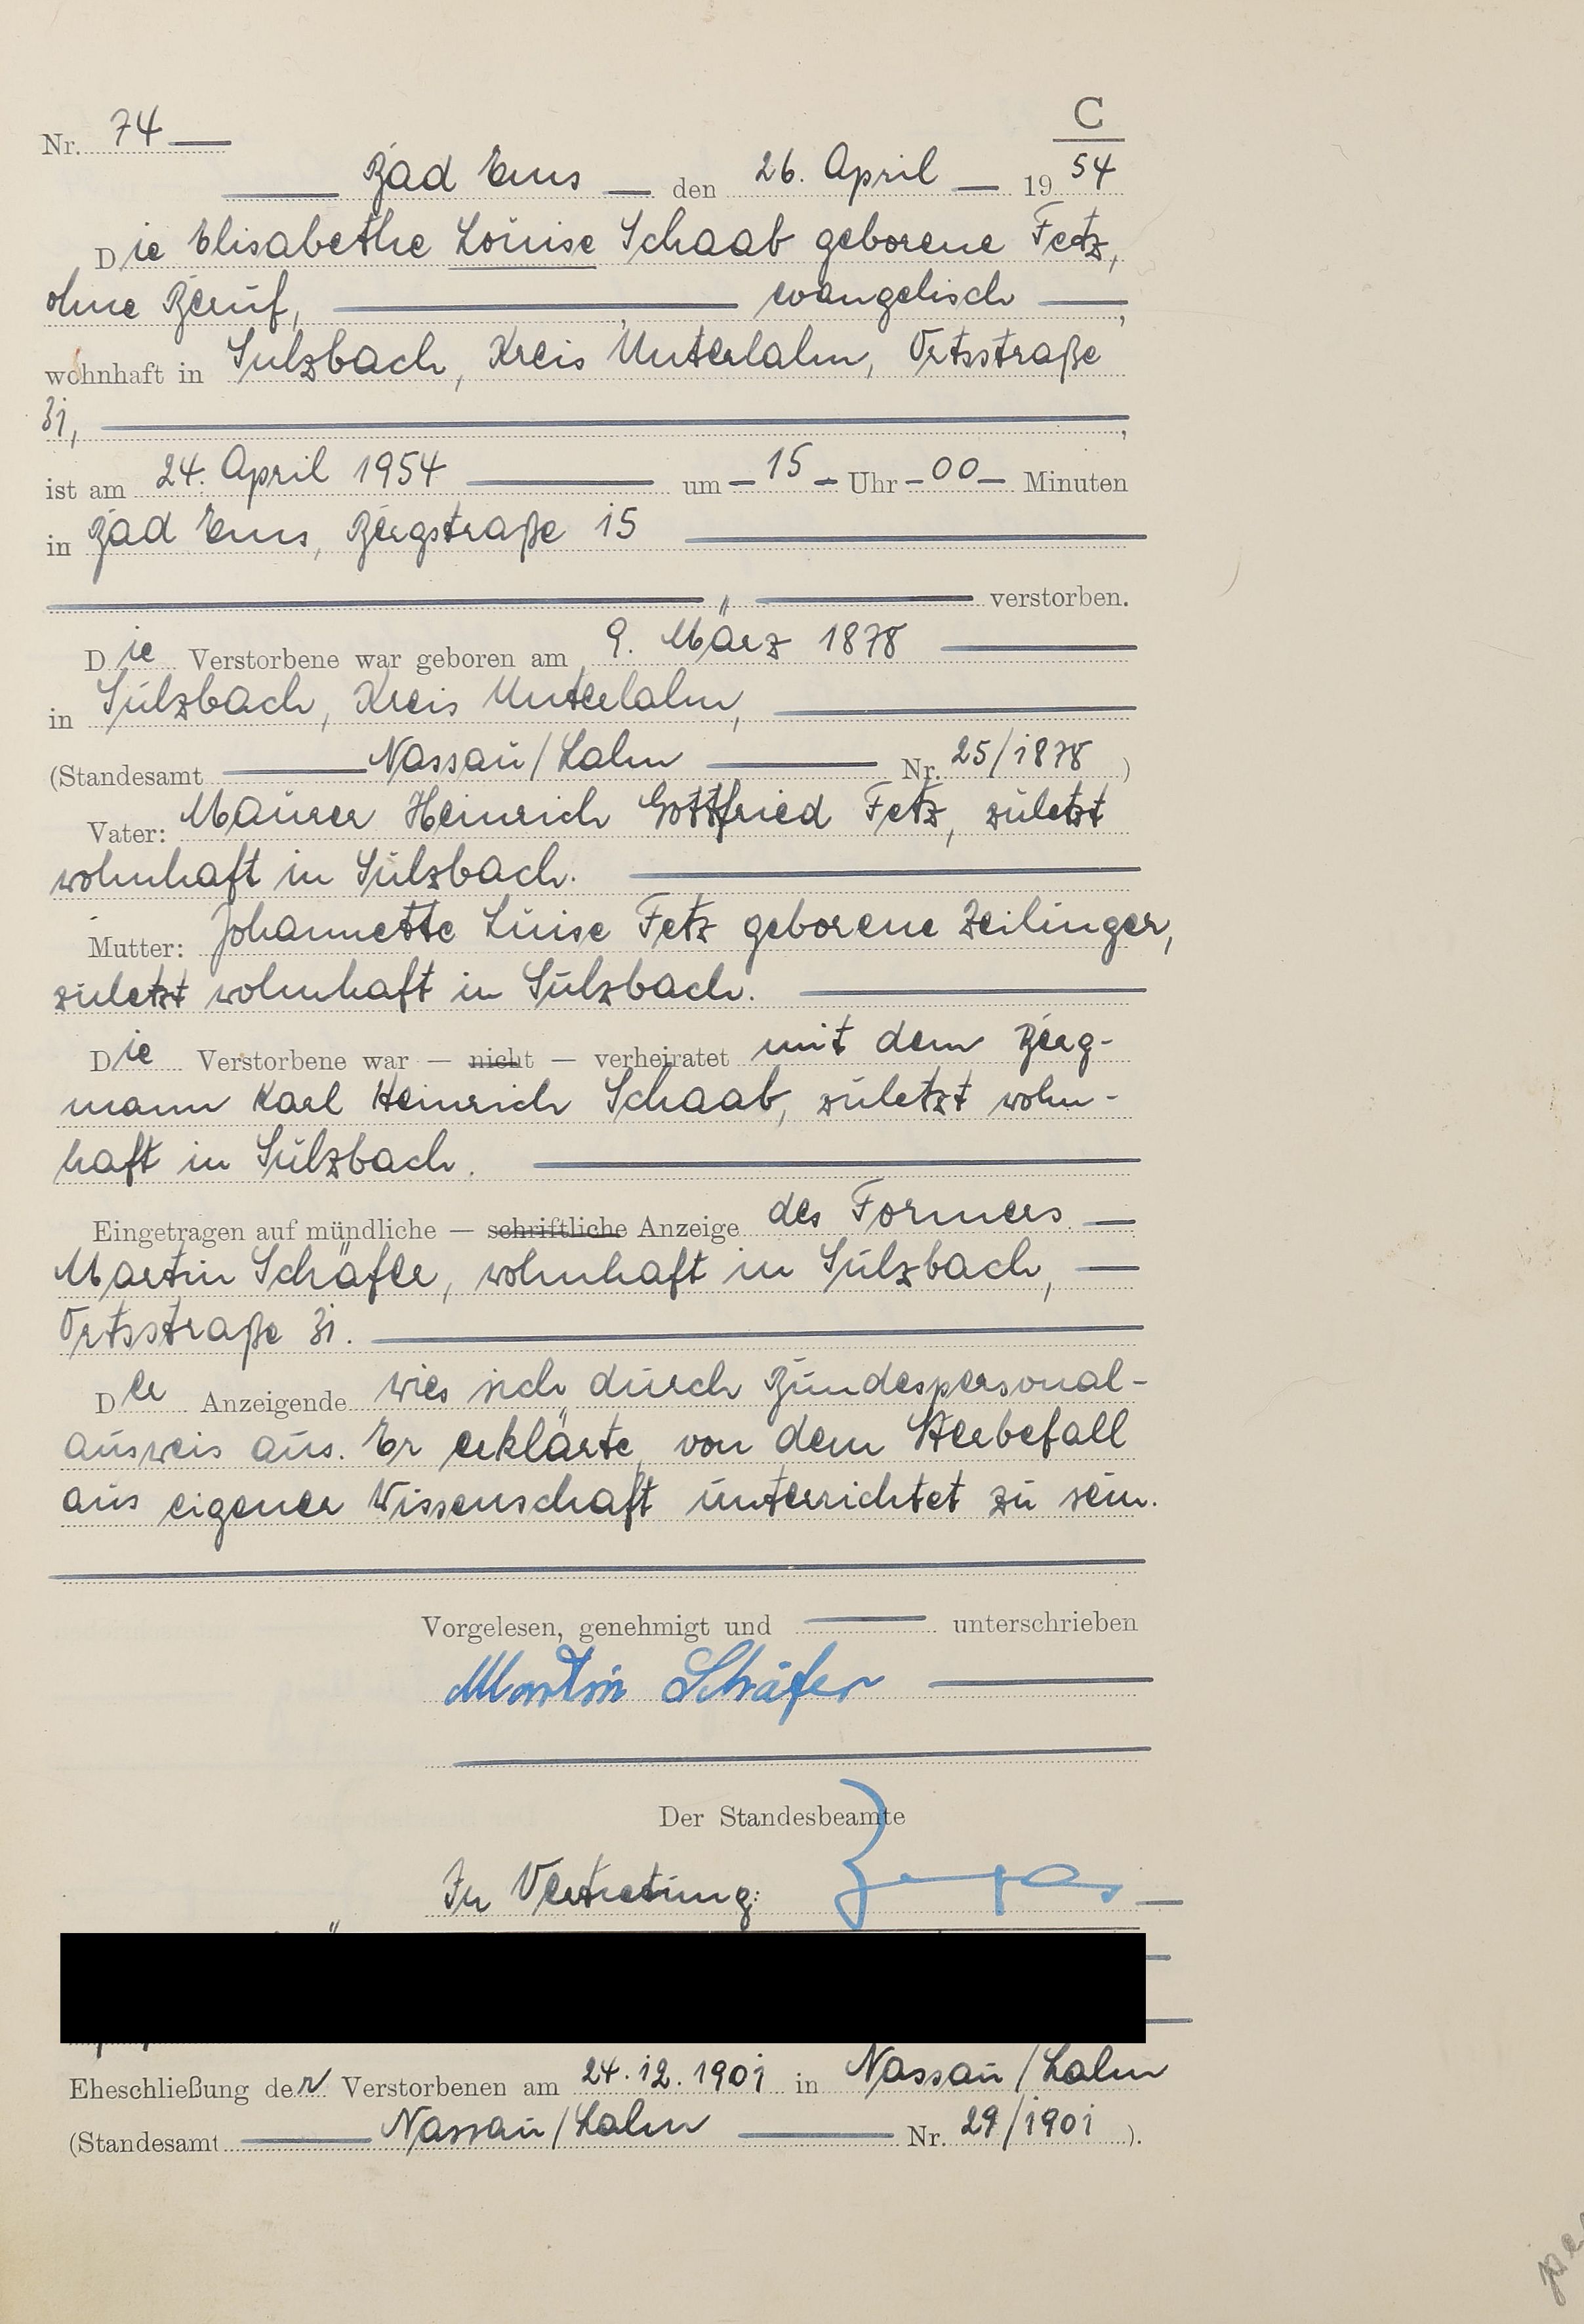 C
Nr. 74
Bad Ems den 26. April 1954
Die Elisabethe Louise Schaab geborene Fetz,
ohne Beruf, evangelisch,
wohnhaft in Sulzbach, Kreis Unterlahn, Ortsstraße
31,
ist am 24. April 1954 um 15 Uhr 00 Minuten
in Bad Ems, Bergstraße 15
verstorben.
Die Verstorbene war geboren am 9. März 1878
in Sulzbach, Kreis Unterlahn,
(Standesamt Nassau/Lahn Nr. 25/1878)
Vater: Maurer Heinrich Gottfried Fetz, zuletzt
wohnhaft in Sulzbach.
Mutter: Johannette Luise Fetz geborene Zeilinger,
zuletzt wohnhaft in Sulzbach.
Die Verstorbene war — nicht — verheiratet mit dem Berg-
mann Karl Heinrich Schaab, zuletzt wohn-
haft in Sulzbach.
Eingetragen auf mündliche — schriftliche Anzeige des Formers
Martin Schäfer, wohnhaft in Sulzbach,
Ortsstraße 31.
Der Anzeigende wies sich durch Bundespersonal-
ausweis aus. Er erklärte, von dem Sterbefall
aus eigener Wissenschaft unterrichtet zu sein.
Vorgelesen, genehmigt und unterschrieben
Martin Schäfer
Der Standesbeamte
In Vertretung:
Eheschließung der Verstorbenen am 24.12.1901 in Nassau/Lahn
(Standesamt Nassau/Lahn Nr. 29/1901).